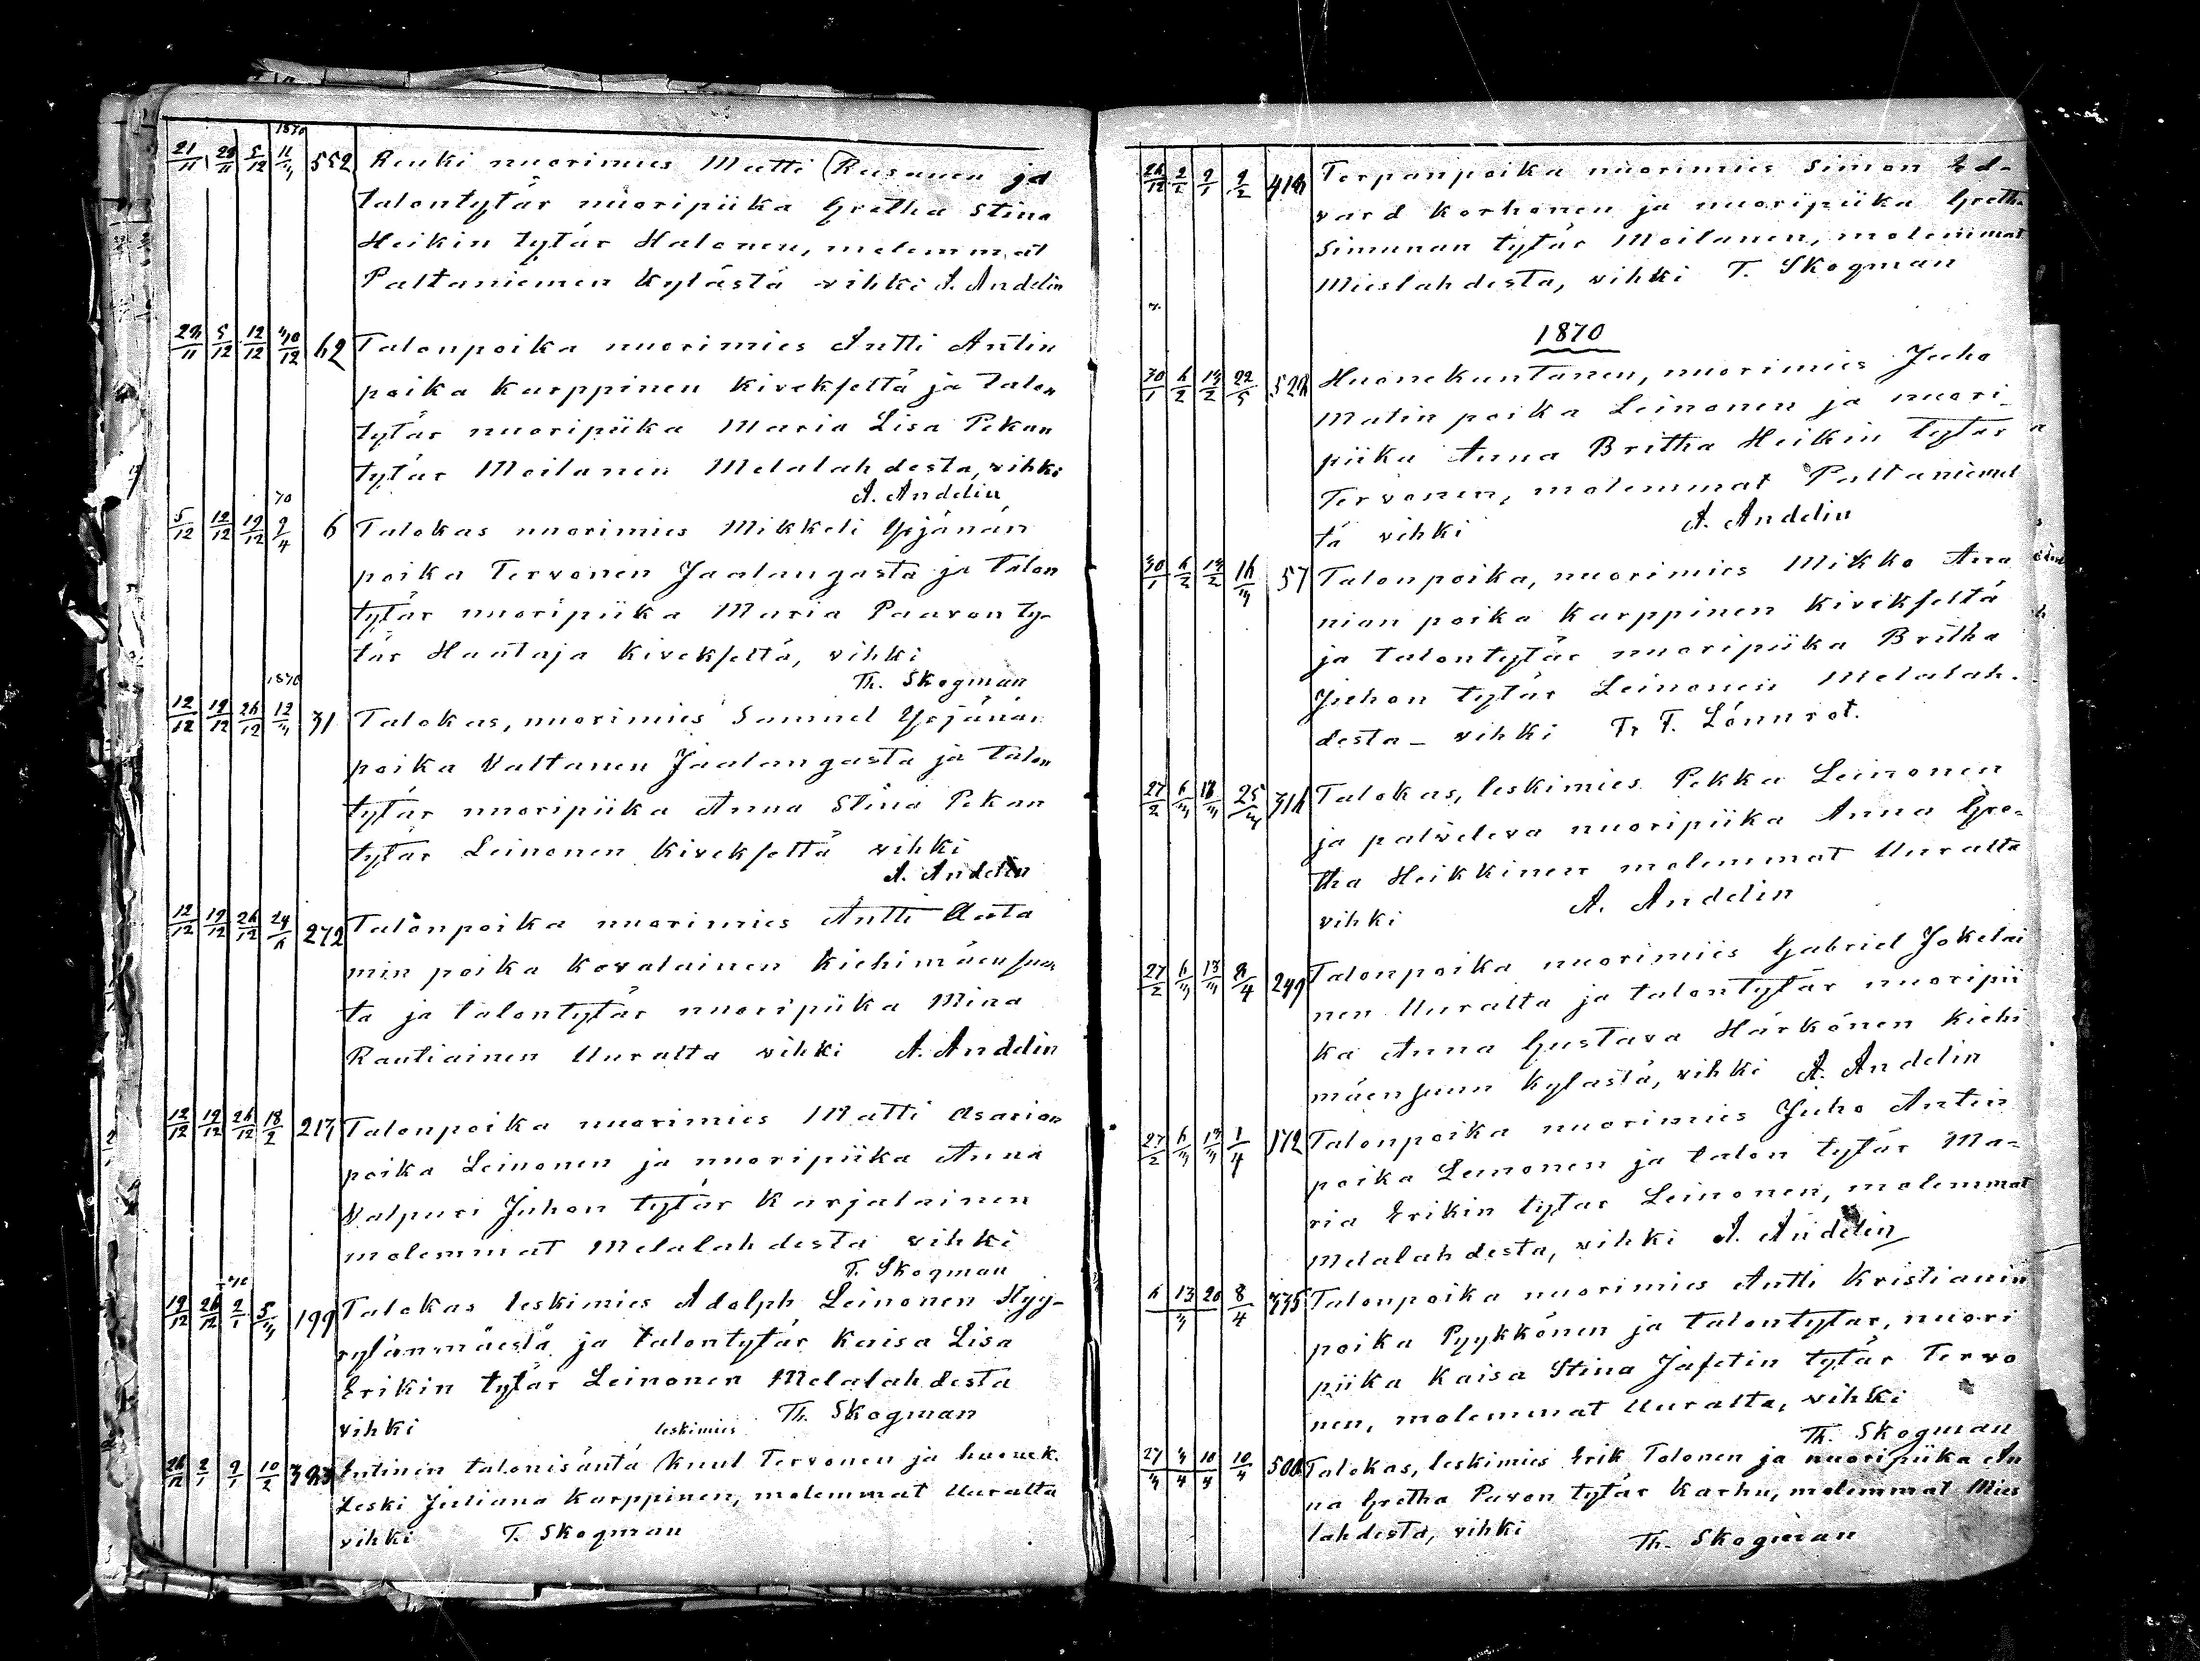 1870
21/11 28/11 5/12 11/3 552 Renki nuorimies Matti Rusanen ja
talontytär nuoripiika Gretha Stina
Heikin tytär Halonen, molemmat
Paltaniemen kylästä vihki A. Andelin
28/11 5/12 12/12 30/12 62 Talonpoika nuorimies Antti Antin
poika Karppinen Kivekseltä ja talon
tytär nuoripiika Maria Lisa Pekan
tytär Moilanen Melalahdesta, vihki
A. Andelin
70
5/12 12/12 19/12 2/4 6 Talokas nuorimies Mikkeli Yrjänän
poika Tervonen Jaalangasta ja talon
tytär nuoripiika Maria Paavon ty-
tär Hautaja Kivekseltä, vihki
Th. Skogman
1870
12/12 19/12 26/12 12/3 31 Talokas, nuorimies Samuel Yrjänän
poika Valtanen Jaalangasta ja talon
tytär nuoripiika Anna Stina Pekan
tytär Leinonen Kivekseltä vihki
A. Andelin
12/12 19/12 26/12 24/6 272 Talonpoika nuorimies Antti Aata
min poika Kovalainen Kiehimäensuu
ta ja talontytär nuoripiika Mina
Rautiainen Uuralta vihki A. Andelin
12/12 19/12 26/12 18/2 217 Talonpoika nuorimies Matti Asarian
poika Leinonen ja nuoripiika Anna
Valpuri Juhon tytär Karjalainen
molemmat Melalahdesta vihki
T. Skogman
19/12 26/12 2/1 5/3 199 Talokas leskimies Adolph Leinonen Hyy-
rylänmäestä ja talontytär Kaisa Lisa
Erikin tytär Leinonen Melalahdesta
vihki Th. Skogman
leskimies
26/12 2/1 9/1 10/2 393 Entinen talonisäntä Knut Tervonen ja huonek.
leski Juliana Karppinen, molemmat Uuralta
vihki T. Skogman
26/12 2/1 9/1 9/2 Torpanpoika nuorimies Simon Ed-
vard Korhonen ja nuoripiika Gretha
Simunan tytär Moilanen, molemmat
Mieslahdesta, vihki T. Skogman
1870
30/1 6/2 13/2 22/5 526 Huonekuntanen, nuorimies Juho
Matin poika Leinonen ja nuori-
piika Anna Britha Heikin tytär
Tervonen, molemmat Paltaniemel
tä vihki A. Andelin
30/1 6/2 13/2 16/3 57 Talonpoika, nuorimies Mikko Ana
nian poika Karppinen Kivekseltä
ja talontytär nuoripiika Britha
Juhon tytär Leinonen Melalah-
desta - vihki Fr F. Lönnrot.
27/2 6/3 13/3 25/3 316 Talokas, leskimies Pekka Leinonen
ja palveleva nuoripiika Anna Gre-
tha Heikkinen molemmat Uuralta
vihki A. Andelin
27/2 6/3 13/3 2/4 249 Talonpoika nuorimies Gabriel Jokelai
nen Uuralta ja talontytär nuoripii
ka Anna Gustava Härkönen Kiehi
mäensuun kylästä, vihki A. Andelin
27/2 6/3 13/3 1/4 172 Talonpoika nuorimies Juho Antin
poika Leinonen ja talon tytär Ma-
ria Erikin tytär Leinonen, molemmat
Melalahdesta, vihki A. Andelin
6 13/3 20 8/4 335 Talonpoika nuorimies Antti Kristianin
poika Pyykkönen ja talontytär, nuori
piika Kaisa Stina Jafetin tytär Tervo
nen, molemmat Uuralta, vihki
Th. Skogman
27/3 3/4 10/4 10/4 500 Talokas, leskimies Erik Tolonen ja nuoripiika An
na Gretha Pavon tytär Karhu, molemmat Mies
lahdesta, vihki Th. Skogman